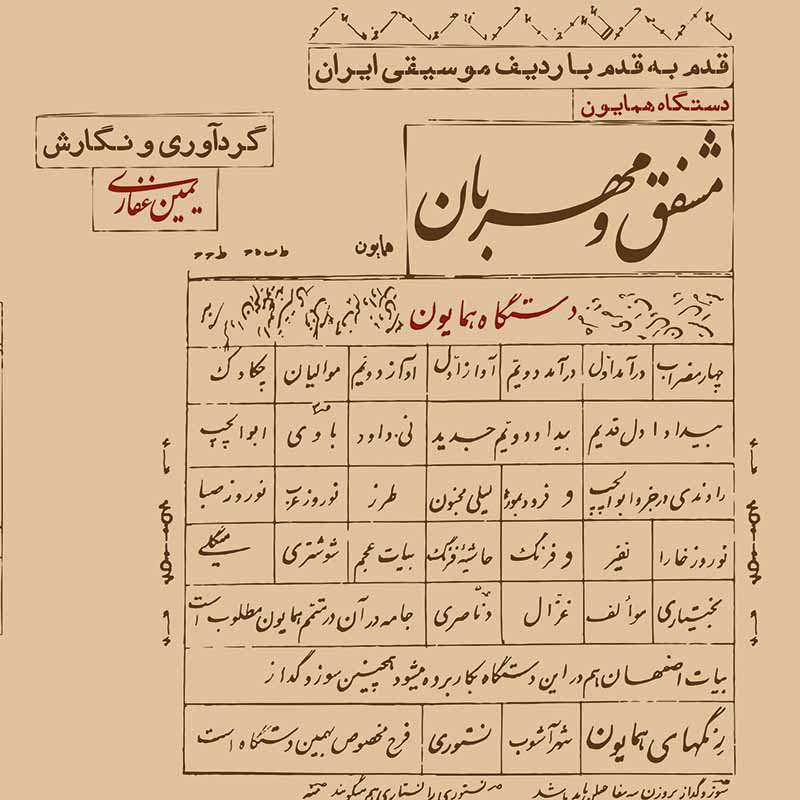 قدم به قدم با ردیف موسیقی ایران
دستگاه همایون
گردآوری و نگارش
یمین غفاری
مشفق و مهربان
همایون
دستگاه همایون
چهارمضراب درآمد اوّل درآمد دویّم آواز اوّل آواز دویّم موالیان چکاوک
بیداد اوّل قدیم بیداد دویّم جدید نی داود باوی ابوالچپ
راوندی در جزو ابوالچپ و فرود لیلی مجنون طرز نوروز عرب نوروز صبا
نوروز خارا نفیر و فرنگ حاشیهٔ فرنگ بیات عجم شوشتری میگلی
بختیاری موألف غزّال دناصری جامه در آن در تتمّم همایون مطلوب است
بیات اصفهان هم در این دستگاه بکار برده میشود همچنین سوز و گداز
رنگهای همایون شهرآشوب نستوری فرح مخصوص بهمین دستگاه است
سوز و گداز بر وزن باید باشد نستوری را نستاری هم میگویند